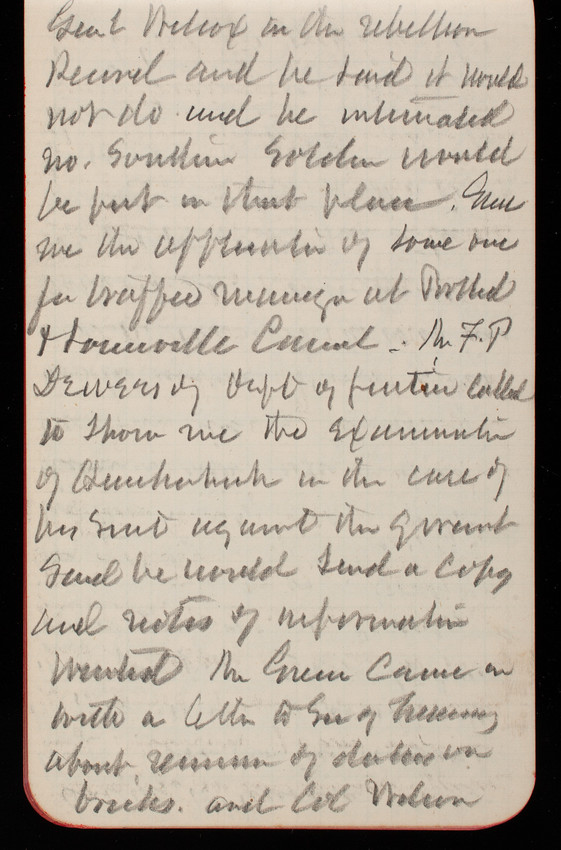 Genl Wilcox in the rebellion
Record and he said it would
not do and he intimated
no. Southern Soldier would
be put in that place. Saw
me the of some one
for traffic manager at Portland
& Louisville Canal. Mr F. P
Dewees of Dept of Justice called
to show me the examination
of in the case of
his Suit against the Govmnt
Said he would send a copy
and notes of information
wanted Mr Green came in
with a letter to Sec of Treasury
about of duties on
bricks. and Col Wilson